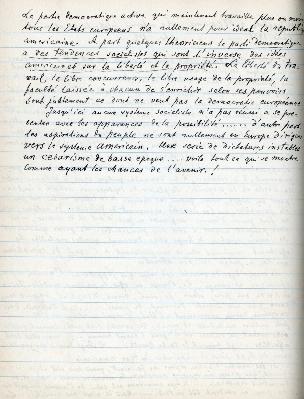 Le parti démocratique active, qui maintenant travaille plus ou moins
tous les États européens n'a nullement pour idéal la républ.
américaine. A part quelques théoriciens le parti démocratique
a des tendances socialistes qui sont l'inverse des idées
américaines sur la liberté et la propriété. La liberté du tra-
vail, la libre concurrence, le libre usage de la propriété, la
faculté laissée à chacun de s'enrichir selon ses pouvoirs
sont justement ce dont ne veut pas la démocratie européenne.
Jusqu'ici aucun système socialiste n'a pas réussi à se pré-
senter avec les apparences de la possibilité ..... d'autre part
les aspirations du peuple ne sont nullement en Europe dirigées
vers le système américain. Une série de dictateurs instables
un césarisme de basse époque .... voilà tout ce qui se montre
comme ayant les chances de l'avenir !